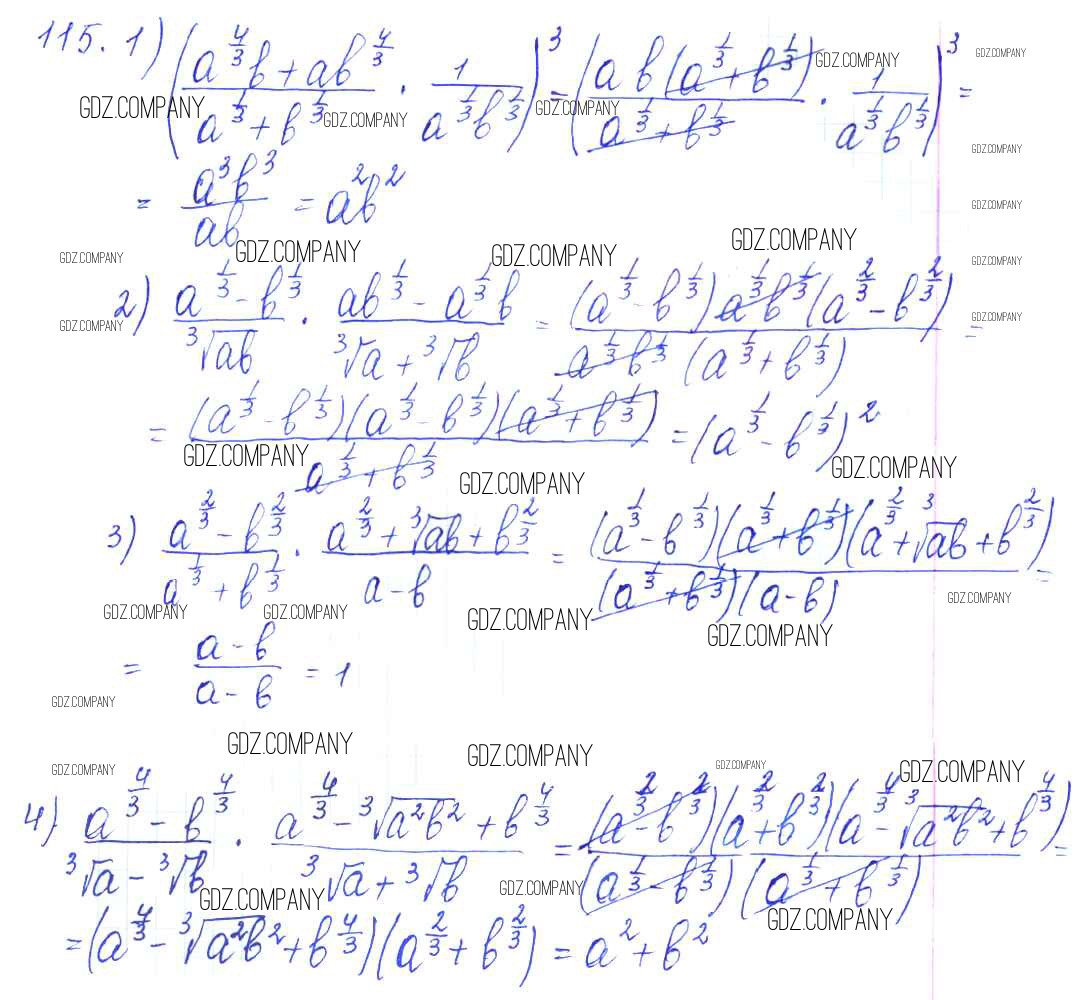 115. 1) ((a^{4/3}b + ab^{4/3})/(a^{1/3} + b^{1/3}) · 1/(a^{1/3}b^{1/3}))^3 = ((ab(a^{1/3} + b^{1/3}))/(a^{1/3} + b^{1/3}) · 1/(a^{1/3}b^{1/3}))^3 =
= a^3b^3/ab = a^2b^2
2) (a^{1/3} - b^{1/3})/∛(ab) · (ab^{1/3} - a^{1/3}b)/(∛a + ∛b) = ((a^{1/3} - b^{1/3})a^{1/3}b^{1/3}(a^{2/3} - b^{2/3}))/(a^{1/3}b^{1/3}(a^{1/3} + b^{1/3})) =
= ((a^{1/3} - b^{1/3})(a^{1/3} - b^{1/3})(a^{1/3} + b^{1/3}))/(a^{1/3} + b^{1/3}) = (a^{1/3} - b^{1/3})^2
3) (a^{2/3} - b^{2/3})/(a^{1/3} + b^{1/3}) · (a^{2/3} + ∛(ab) + b^{2/3})/(a - b) = ((a^{1/3} - b^{1/3})(a^{1/3} + b^{1/3})(a^{2/3} + ∛(ab) + b^{2/3}))/((a^{1/3} + b^{1/3})(a - b)) =
= (a - b)/(a - b) = 1
4) (a^{4/3} - b^{4/3})/(∛a - ∛b) · (a^{4/3} - ∛(a^2b^2) + b^{4/3})/(∛a + ∛b) = ((a^{2/3} - b^{2/3})(a^{2/3} + b^{2/3})(a^{4/3} - ∛(a^2b^2) + b^{4/3}))/((a^{1/3} - b^{1/3})(a^{1/3} + b^{1/3})) =
= (a^{4/3} - ∛(a^2b^2) + b^{4/3})(a^{2/3} + b^{2/3}) = a^2 + b^2
GDZ.COMPANY